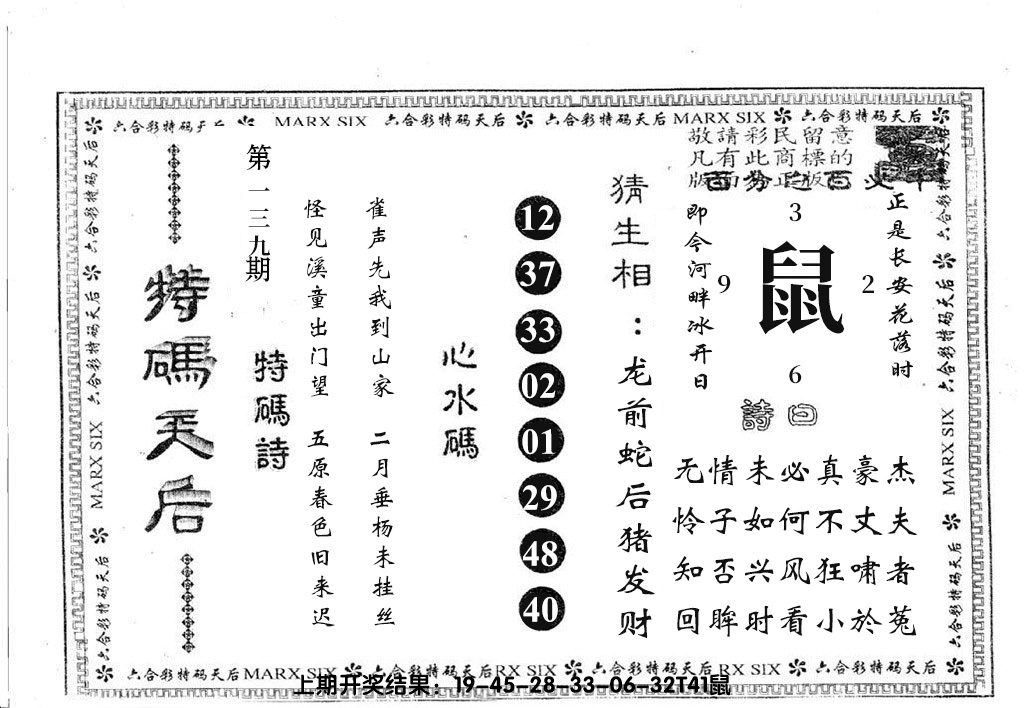 六合彩特码天后 MARX SIX 六合彩特码天后 六合彩特码天后 MARX SIX 六合彩特码天后
敬請彩民留意
凡有此商標的
版面为正版
正是长安花落时
即今河畔冰开日
3
9 鼠 2
6
詩曰
无情未必真豪杰
怜子如何不丈夫
知否兴风狂啸者
回眸时看小於菟
猜生相：龙前蛇后猪发财
12
37
33
02
01
29
48
40
心水碼
雀声先我到山家 二月垂杨未挂丝
怪见溪童出门望 五原春色旧来迟
特碼詩
第一三九期
特碼天后
六合彩特码天后 六合彩特码天后 MARX SIX 六合彩特码天后
六合彩特码天后 六合彩特码天后 MARX SIX 六合彩特码天后
六合彩特码天后 MARX SIX 六合彩特码天后 RX SIX 六合彩特码天后 RX SIX 六合彩特码天后
上期开奖结果：19-45-28-33-06-32T41鼠